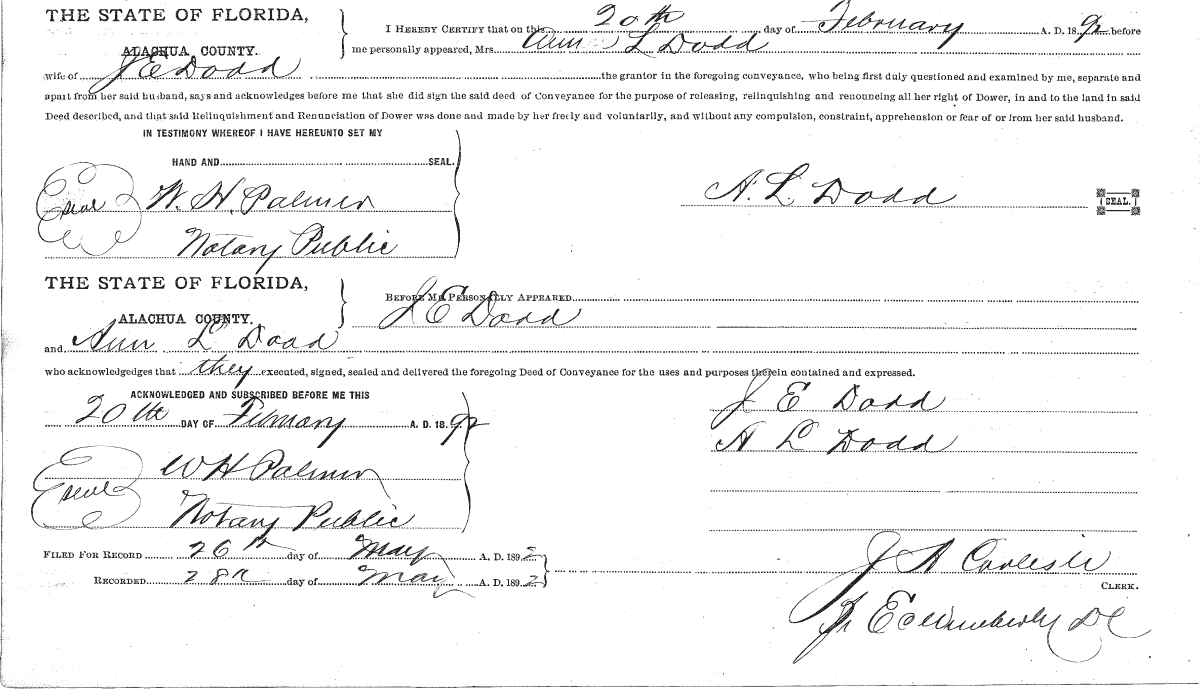 THE STATE OF FLORIDA,
ALACHUA COUNTY.
I HEREBY CERTIFY that on this 20th day of February A. D. 1892 before
me personally appeared, Mrs. Ann L Dodd
wife of J E Dodd the grantor in the foregoing conveyance, who being first duly questioned and examined by me, separate and
apart from her said husband, says and acknowledges before me that she did sign the said deed of Conveyance for the purpose of releasing, relinquishing and renouncing all her right of Dower, in and to the land in said
Deed described, and that said Relinquishment and Renunciation of Dower was done and made by her freely and voluntarily, and without any compulsion, constraint, apprehension or fear of or from her said husband.
IN TESTIMONY WHEREOF I HAVE HEREUNTO SET MY
HAND AND SEAL.
seal W. H. Palmer
Notary Public
A. L. Dodd
SEAL.
THE STATE OF FLORIDA,
ALACHUA COUNTY.
BEFORE ME PERSONALLY APPEARED
J E Dodd
and Ann L Dodd
who acknowledgedges that they executed, signed, sealed and delivered the foregoing Deed of Conveyance for the uses and purposes therein contained and expressed.
ACKNOWLEDGED AND SUBSCRIBED BEFORE ME THIS
20th DAY OF February A. D. 1892
seal W H Palmer
Notary Public
J E Dodd
A L Dodd
FILED FOR RECORD 26th day of May A. D. 1892
RECORDED 28th day of May A. D. 1892
J A Carlisle
CLERK.
DC